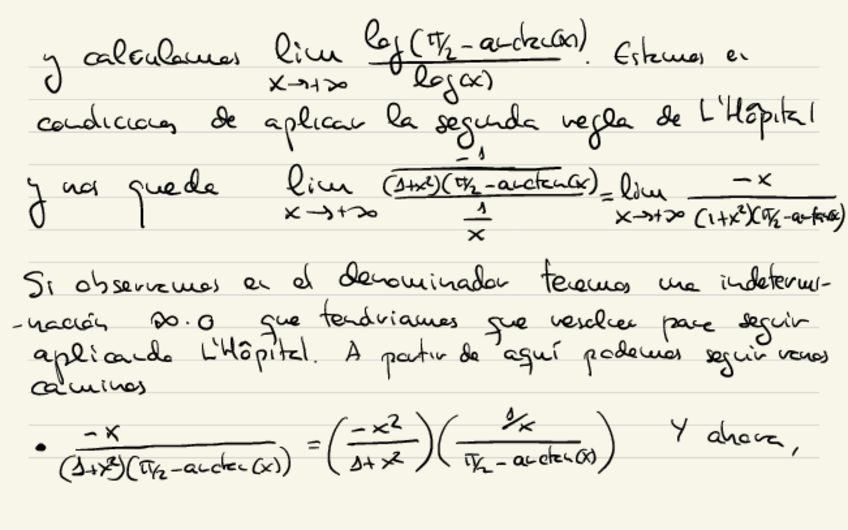 y calculamos lim x→+∞ log(π/2 - arctan(x)) / log(x). Estamos en
condiciones de aplicar la segunda regla de L'Hôpital
y nos queda lim x→+∞ (-1 / ((1+x²)(π/2 - arctan(x)))) / (1/x) = lim x→+∞ -x / ((1+x²)(π/2 - arctan(x)))
Si observamos en el denominador tenemos una indetermi-
-nación ∞·0 que tendriamos que resolver para seguir
aplicando L'Hôpital. A partir de aquí podemos seguir varios
caminos
• -x / ((1+x²)(π/2 - arctan(x))) = (-x² / (1+x²)) ((1/x) / (π/2 - arctan(x))) Y ahora,